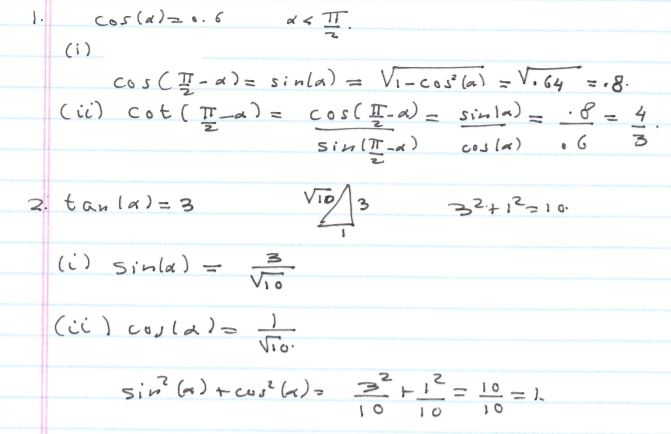 1. cos(α) = 0.6 α < π/2.
(i)
cos(π/2 - α) = sin(α) = √1-cos²(α) = √.64 = .8.
(ii) cot(π/2 - α) = cos(π/2 - α)/sin(π/2 - α) = sin(α)/cos(α) = .8/.6 = 4/3.
2. tan(α) = 3 √10 3 1 3² + 1² = 10.
(i) sin(α) = 3/√10
(ii) cos(α) = 1/√10.
sin²(α) + cos²(α) = 3²/10 + 1²/10 = 10/10 = 1.